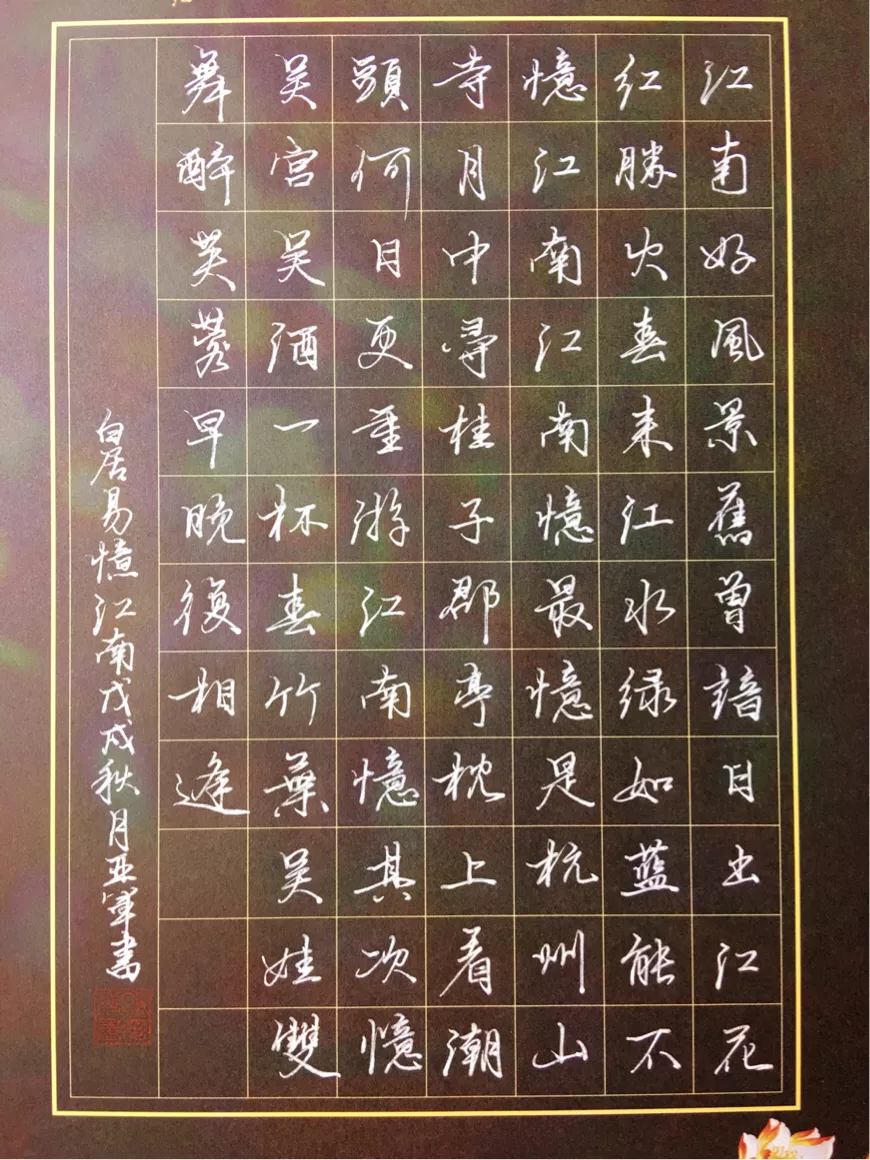 江南好風景舊曾諳日出江花
紅勝火春来江水緑如蓝能不
憶江南江南憶最憶是杭州山
寺月中尋桂子郡亭枕上看潮
頭何日更重游江南憶其次憶
吴宫吴酒一杯春竹葉吴娃雙
舞醉芙蓉早晚復相逢
白居易憶江南戊戌秋月亚軍書